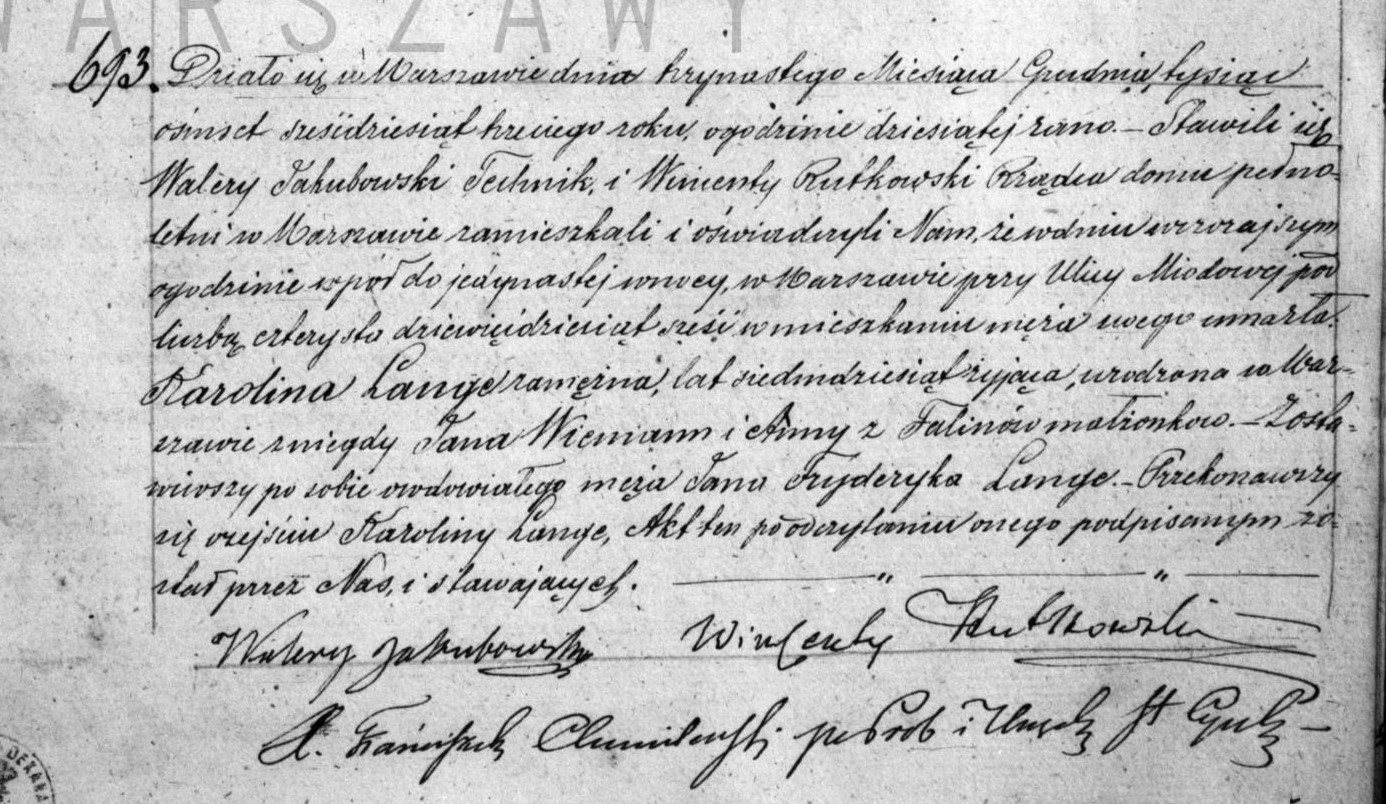 WARSZAWY
693. Działo się w Warszawie dnia trzynastego Miesiąca Grudnia, tysiąc
ośmset sześćdziesiąt trzeciego roku, o godzinie dziesiątej rano. – Stawili się
Walery Jakubowski Technik, i Wincenty Rutkowski Rządca domu pełno-
letni w Warszawie zamieszkali i oświadczyli Nam, że w dniu wczorajszym
o godzinie wpół do jedynastej w nocy, w Warszawie przy Ulicy Miodowej pod
liczbą czterysta dziewięćdziesiąt sześć w mieszkaniu męża swego umarła.
Karolina Lange zamężna, lat siedmdziesiąt żyjąca, urodzona w War-
szawie z niegdy Jana Wiemann i Anny z Falinów małżonków. – Zosta-
wiwszy po sobie owdowiałego męża Jana Fryderyka Lange. – Przekonawszy
się o zejściu Karoliny Lange, Akt ten po odczytaniu onego podpisanym zo-
stał przez Nas, i stawających.
Walery Jakubowski Wincenty Rutkowski
X. Franciszek
DEKANA